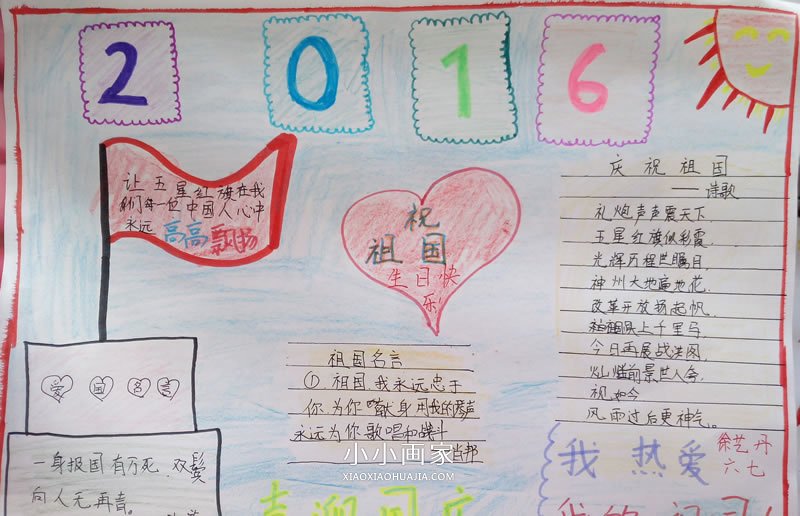 2 0 1 6
让五星红旗在我
们每一位中国人心中
永远 高高飘扬
祝
祖国
生日快
乐!
庆祝祖国
——诗歌
礼炮声声震天下
五星红旗似彩霞
光辉历程世瞩目
神州大地遍地花
改革开放扬起帆
祖国跃上千里马
今日再展战洪图
灿烂前景世人夸
视如今
风雨过后更神气。
祖国名言
①祖国我永远忠于
你为你献身用我的琴声
永远为你歌唱和战斗
肖邦
爱国名言
一身报国有万死双鬓
向人无再青。
我热爱
徐艺丹
六七
喜迎国庆
我的祖国!
小小画家
XIAOXIAOHUAJIA.COM